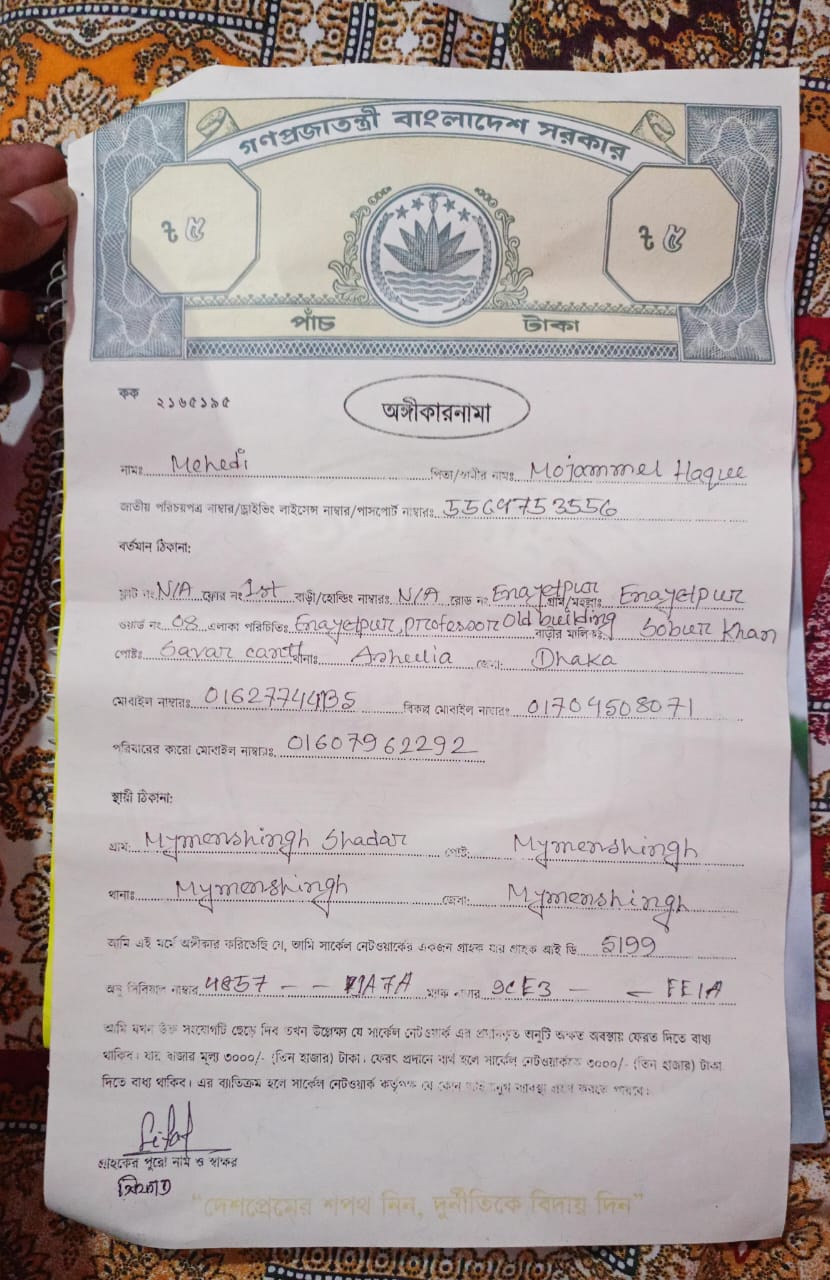 গণপ্রজাতন্ত্রী বাংলাদেশ সরকার
৳ ৫ ৳ ৫
পাঁচ টাকা
কক ২১৬৫১৯৫
অঙ্গীকারনামা
নামঃ Mehedi পিতা/স্বামীর নামঃ Mojammel Haque
জাতীয় পরিচয়পত্র নাম্বার/ড্রাইভিং লাইসেন্স নাম্বার/পাসপোর্ট নাম্বারঃ 5569753556
বর্তমান ঠিকানা:
ফ্লাট নং N/A ফ্লোর নং 1st বাড়ী/হোল্ডিং নাম্বারঃ N/A রোড নং Enayetpur গ্রাম/মহল্লাঃ Enayetpur
ওয়ার্ড নং 08 এলাকা পরিচিতিঃ Enayetpur, professor Old building বাড়ীর মালিকঃ Sobur Khan
পোষ্টঃ Savar cantt থানাঃ Ashulia জেলা: Dhaka
মোবাইল নাম্বারঃ বিকল্প মোবাইল নাম্বারঃ 01704508071
পরিবারের কারো মোবাইল নাম্বারঃ 01607962292
স্থায়ী ঠিকানা:
গ্রাম: Mymenshingh Shadar পোষ্ট: Mymenshingh
থানাঃ Mymenshingh জেলা: Mymenshingh
আমি এই মর্মে অঙ্গীকার করিতেছি যে, আমি সার্কেল নেটওয়ার্কের একজন গ্রাহক যার গ্রাহক আই ডি 5199
অনু সিরিয়াল নাম্বার 4857 - - A7A ম্যাক নাম্বার 9CE3 - - FE1A
আমি যখন উক্ত সংযোগটি ছেড়ে দিব তখন উল্লেক্ষ্য যে সার্কেল নেটওয়ার্ক এর প্রদানকৃত অনুটি অক্ষত অবস্থায় ফেরত দিতে বাধ্য
থাকিব। যার বাজার মূল্য ৩০০০/- (তিন হাজার) টাকা। ফেরৎ প্রদানে ব্যর্থ হলে সার্কেল নেটওয়ার্ককে ৩০০০/- (তিন হাজার) টাকা
দিতে বাধ্য থাকিব। এর ব্যাতিক্রম হলে সার্কেল নেটওয়ার্ক কর্তৃপক্ষ যে কোন আইনানুগ ব্যবস্থা গ্রহণ করতে পারবে।
Sifat
গ্রাহকের পুরো নাম ও স্বাক্ষর
সিফাত
"দেশপ্রেমের শপথ নিন, দুর্নীতিকে বিদায় দিন"